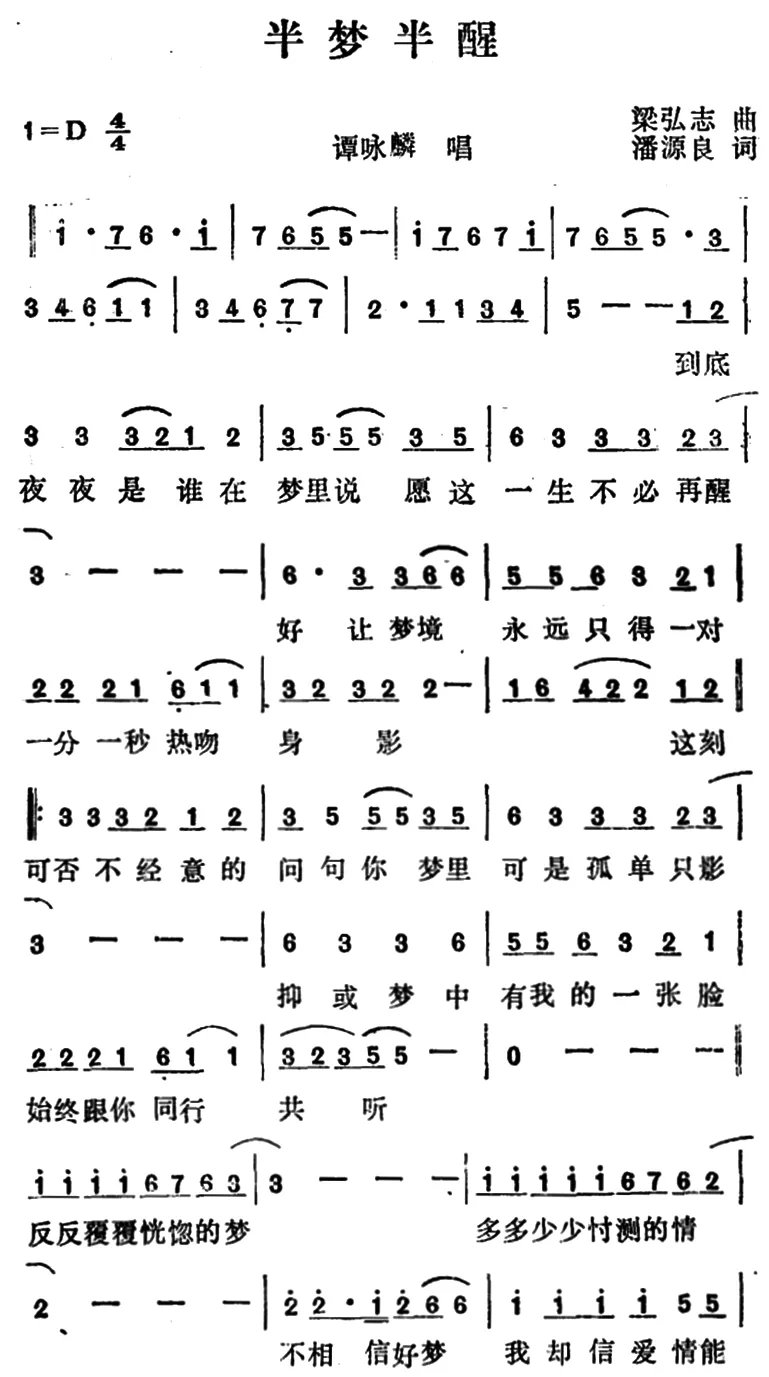 半梦半醒
1=D 4/4
谭咏麟 唱
梁弘志 曲
潘源良 词
i · 7 6 · i | 7 6 5 5 5 — | i 7 6 7 i | 7 6 5 5 · 3 |
3 4 6 1 1 | 3 4 6 7 7 | 2 · 1 1 3 4 | 5 — — 1 2 |
到底
3 3 3 2 1 2 | 3 5 5 5 3 5 | 6 3 3 3 2 3 |
夜夜是谁在 梦里说 愿这 一生不必再醒
3 — — — | 6 · 3 3 6 6 | 5 5 6 3 2 1 |
好 让梦境 永远只得一对
2 2 2 1 6 1 1 | 3 2 3 2 2 — | 1 6 4 2 2 1 2 ‖
一分一秒热吻 身 影 这刻
‖: 3 3 3 2 1 2 | 3 5 5 5 3 5 | 6 3 3 3 2 3 |
可否不经意的 问句你 梦里 可是孤单只影
3 — — — | 6 3 3 6 | 5 5 6 3 2 1 |
抑或梦中 有我的一张脸
2 2 2 1 6 1 1 | 3 2 3 5 5 — | 0 — — — |
始终跟你同行 共 听
i i i i 6 7 6 3 | 3 — — — | i i i i i 6 7 6 2 |
反反覆覆恍惚的梦 多多少少忖测的情
2 — — — | 2 2 · i 2 6 6 | i i i i 5 5 |
不相 信好梦 我却信爱情能